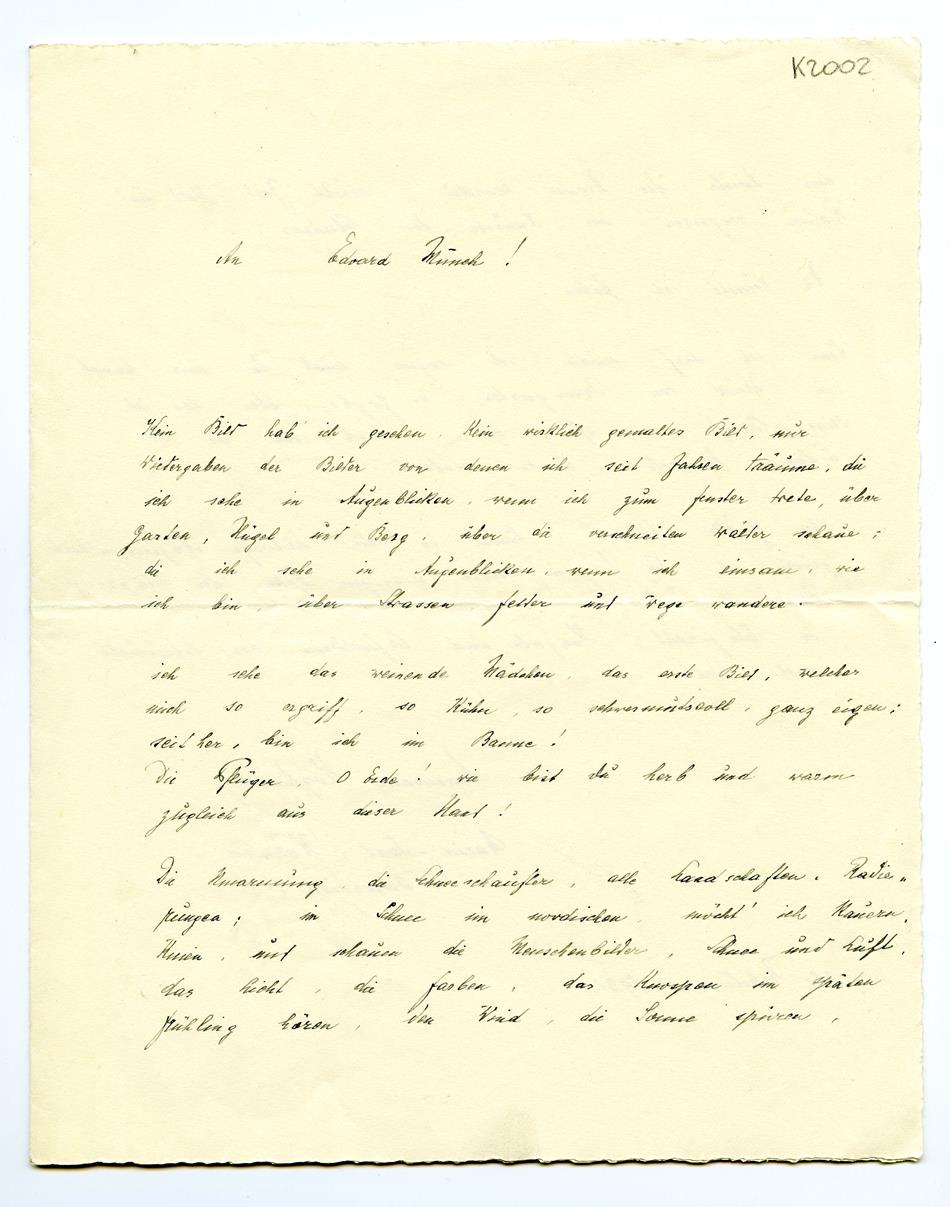 K2002
An Edvard Munch !
Kein Bild hab' ich gesehen. Kein wirklich gemaltes Bild, nur
Wiedergaben der Bilder von denen ich seit Jahren träume, die
ich sehe in Augenblicken, wenn ich zum Fenster trete, über
Garten, Hügel und Berg, über die verschneiten Wälder schaue ;
die ich sehe in Augenblicken, wenn ich einsam, wie
ich bin, über Strassen, Felder und Wege wandere.
ich sehe das weinende Mädchen, das erste Bild, welches
mich so ergriff, so kühn, so schwermutsvoll, ganz eigen ;
seither, bin ich im Banne !
Die Pflüger. O Erde ! wie bist du herb und warm
zugleich aus dieser Hand !
Die Umarmung, die Schneeschaufler, alle Landschaften, Radie„
rungen ; im Schnee im nordischen, möcht' ich kauern,
knien, und schauen die Menschenbilder, Schnee und Luft,
das Licht, die Farben, das Knospen im späten
Frühling hören, den Wind, die Sonne spüren,